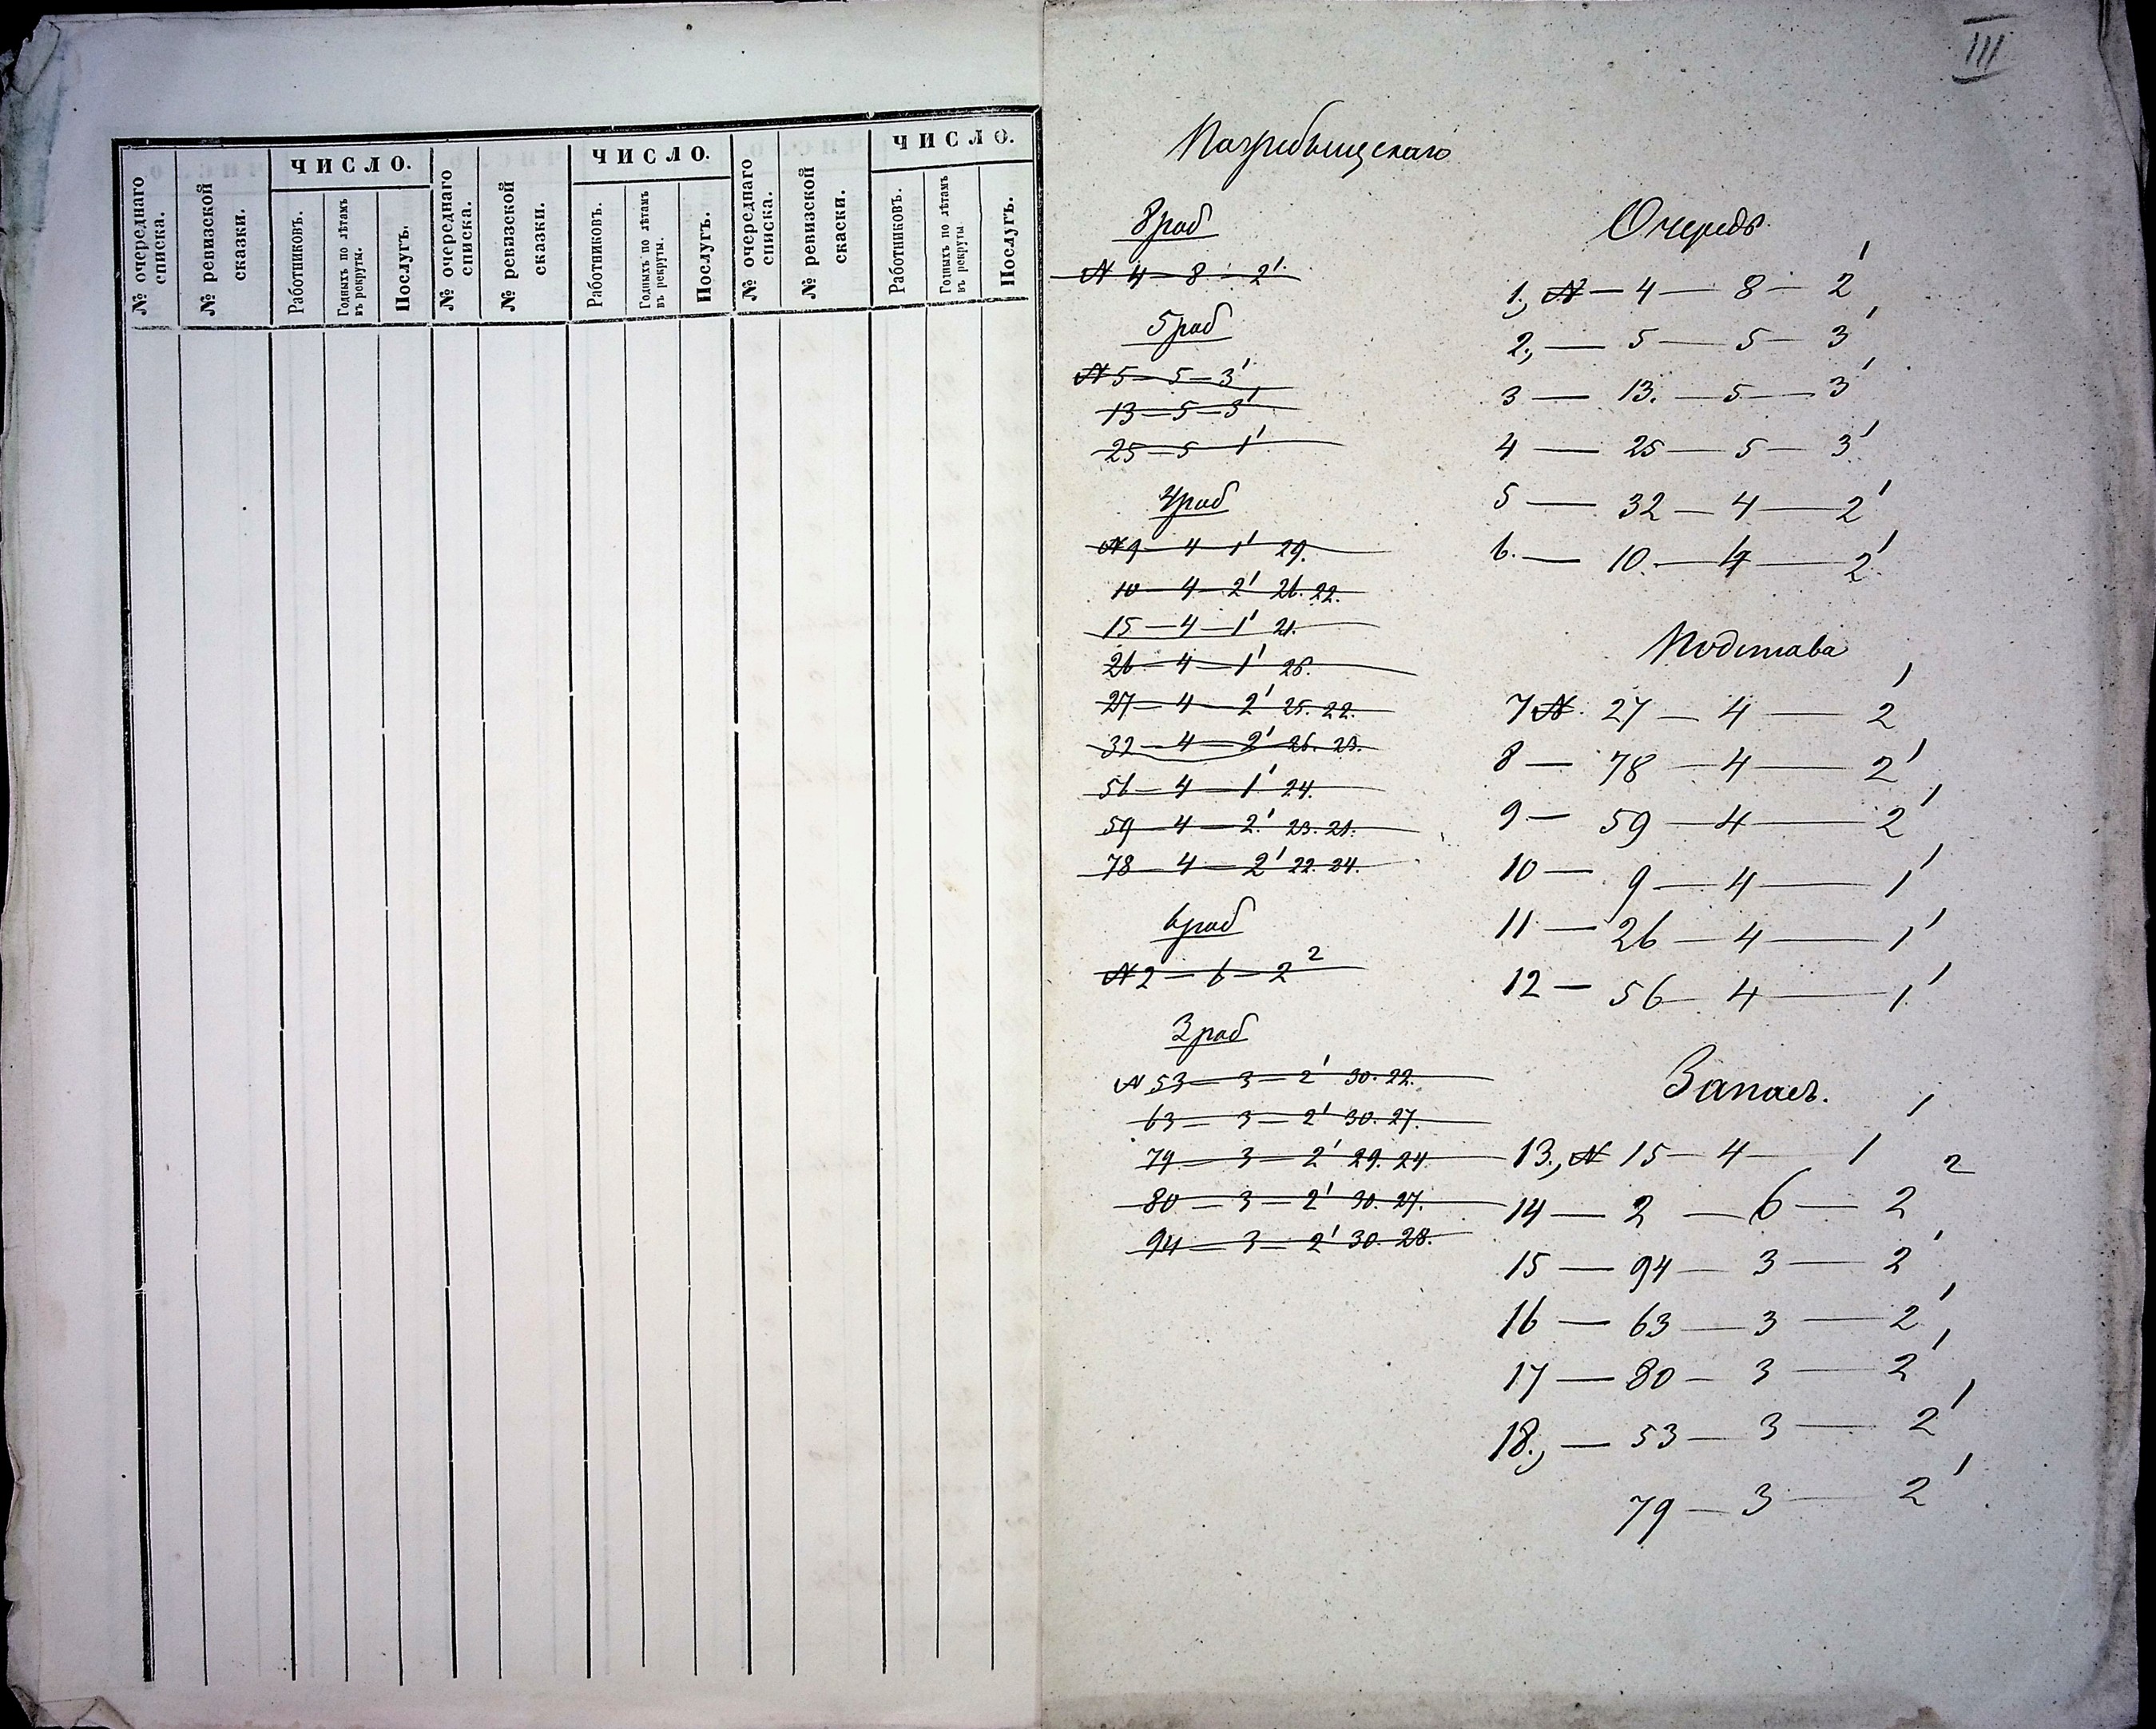 № очереднаго списка.
№ ревизской сказки.
ЧИСЛО.
Работниковъ.
Годныхъ по лѣтамъ въ рекруты.
Послугъ.
№ очереднаго списка.
№ ревизской сказки.
ЧИСЛО.
Работниковъ.
Годныхъ по лѣтамъ въ рекруты.
Послугъ.
№ очереднаго списка.
№ ревизской скаски.
ЧИСЛО.
Работниковъ.
Годныхъ по лѣтамъ въ рекруты.
Послугъ.
III
Погребищскаго
8 раб
№ 4 — 8 — 2¹
5 раб
№ 5 — 5 — 3¹
13 — 5 — 3¹
25 — 5 — 1¹
4 раб
№ 9 — 4 — 1¹ 29.
10 — 4 — 2¹ 26. 22.
15 — 4 — 1¹ 21.
26 — 4 — 1¹ 25.
27 — 4 — 2¹ 25. 22.
32 — 4 — 2¹ 26. 23.
56 — 4 — 1¹ 24.
59 — 4 — 2¹ 23. 21.
78 — 4 — 2¹ 22. 24.
6 раб
№ 2 — 6 — 2²
3 раб
№ 53 — 3 — 2¹ 30. 22.
63 — 3 — 2¹ 30. 27.
79 — 3 — 2¹ 29. 24.
80 — 3 — 2¹ 30. 27.
94 — 3 — 2¹ 30. 28.
Очередь.
1., № — 4 — 8 — 2¹
2., — 5 — 5 — 3¹
3 — 13. — 5 — 3¹
4 — 25 — 5 — 3¹
5 — 32 — 4 — 2¹
6. — 10. — 4 — 2¹
Подстава
7 № 27 — 4 — 2¹
8 — 78 — 4 — 2¹
9 — 59 — 4 — 2¹
10 — 9 — 4 — 1¹
11 — 26 — 4 — 1¹
12 — 56 — 4 — 1¹
Запасъ.
13., № 15 — 4 — 1¹
14 — 2 — 6 — 2²
15 — 94 — 3 — 2¹
16 — 63 — 3 — 2¹
17 — 80 — 3 — 2¹
18., — 53 — 3 — 2¹
79 — 3 — 2¹